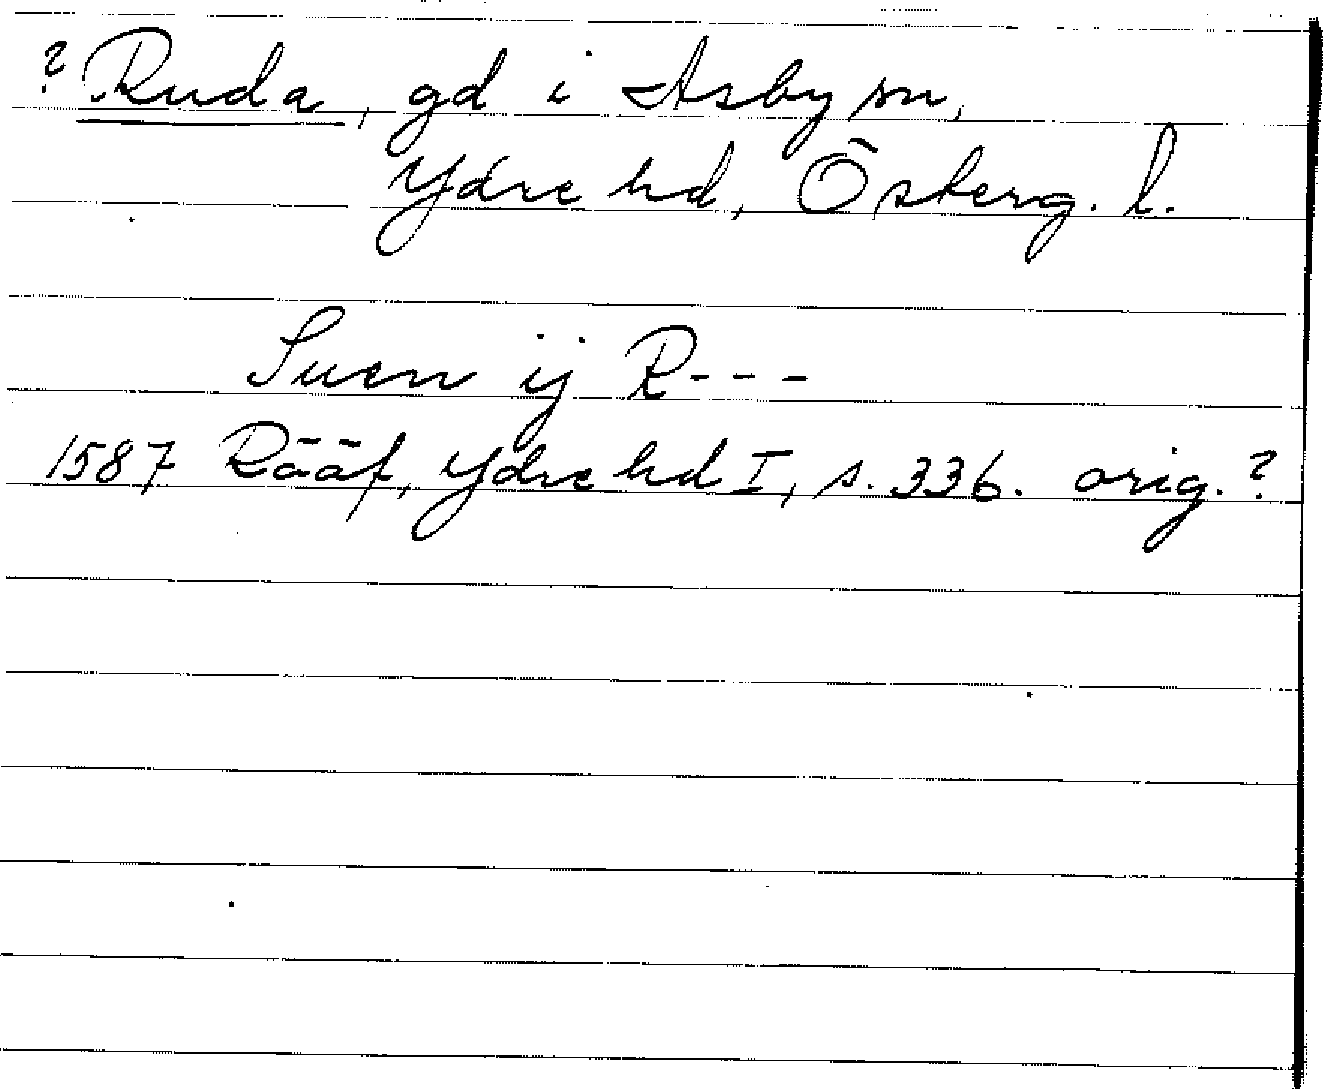 ? Ruda, gd i Asby sn,
Ydre hd, Österg. l.
Suen ij R---
1587 Rääf, Ydre hd I, s. 336. orig.?